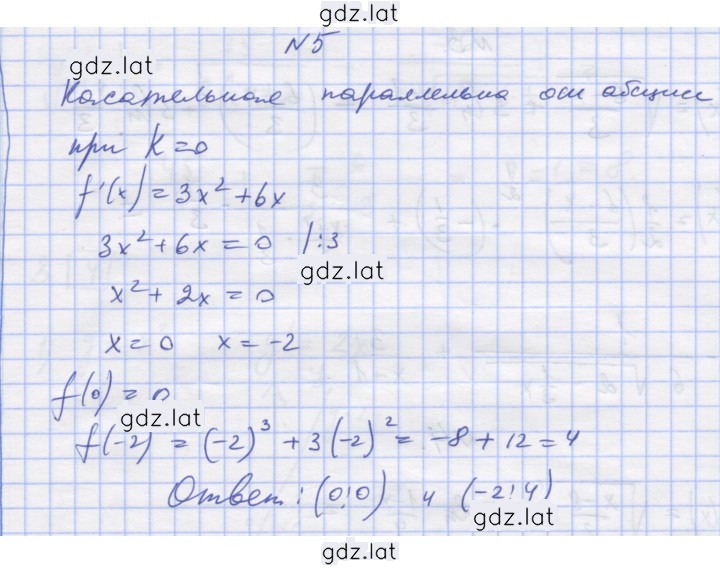 gdz.lat
№5
gdz.lat
Касательная параллельна оси абсцисс
при K=0
f'(x) = 3x² + 6x
3x² + 6x = 0 /:3
gdz.lat
x² + 2x = 0
x = 0 x = -2
f(0) = 0
gdz.lat
f(-2) = (-2)³ + 3(-2)² = -8 + 12 = 4
Ответ: (0;0) и (-2;4)
gdz.lat
gdz.lat